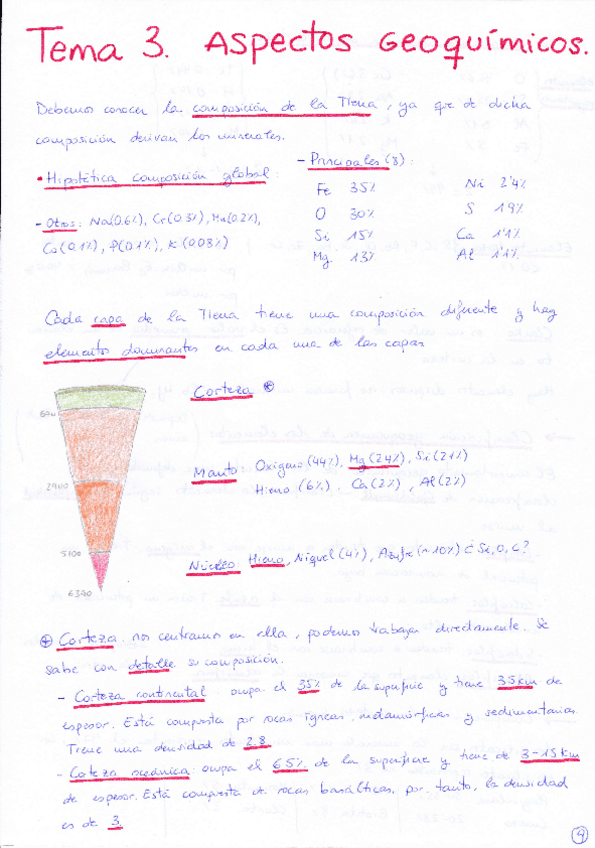 Tema 3. Aspectos Geoquímicos.
Debemos conocer la composición de la Tierra, ya que de dicha
composición derivan los minerales.
• Hipotética composición global:
- Principales (8):
Fe 35% Ni 2'4%
O 30% S 1'9%
Si 15% Ca 1'1%
Mg 13% Al 1'1%
- Otros: Na(0.6%), Cr(0.3%), Mn(0.2%),
Co(0.1%), P(0.1%), K(0.08%)
Cada capa de la Tierra tiene una composición diferente y hay
elementos dominantes en cada una de las capas
Corteza *
2900
5100
6370
Manto: Oxígeno (44%), Mg(24%), Si(21%)
Hierro (6%), Ca(2%), Al(2%)
Núcleo: Hierro, Niquel (4%), Azufre (~10%) ¿Si, O, C?
* Corteza: nos centramos en ella, podemos trabajar directamente. Se
sabe con detalle su composición.
- Corteza continental: ocupa el 35% de la superficie y tiene 35km de
espesor. Está compuesta por rocas ígneas, metamórficas y sedimentarias.
Tiene una densidad de 2.8.
- Corteza oceánica: ocupa el 65% de la superficie y tiene de 3-15km
de espesor. Está compuesta de rocas basálticas, por tanto, la densidad
es de 3.
9